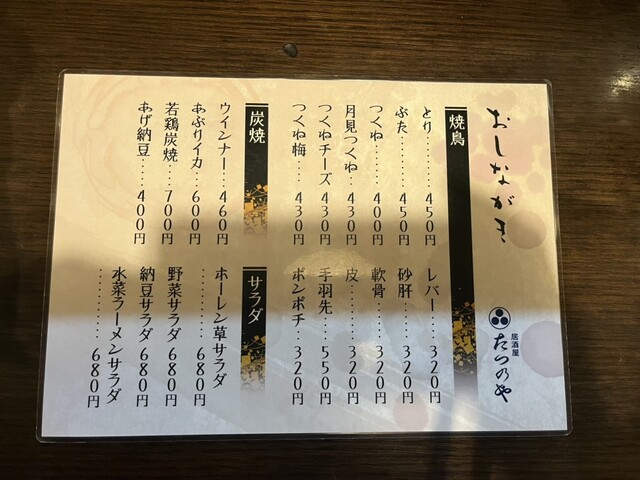 おしながき
居酒屋
たつのや
焼鳥
とり………450円
ぶた………450円
つくね………400円
月見つくね‥430円
つくねチーズ430円
つくね梅…430円
レバー…320円
砂肝………320円
軟骨………320円
皮………320円
手羽先…550円
ボンボチ…320円
炭焼
ウインナー‥460円
あぶりイカ…600円
若鶏炭焼…700円
あげ納豆…400円
サラダ
ホーレン草サラダ
………680円
野菜サラダ680円
納豆サラダ680円
水菜ラーメンサラダ
………680円